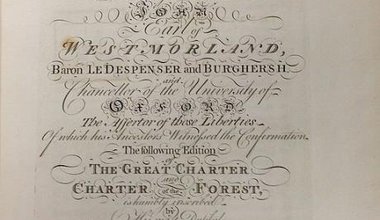 JOHN
Earl of
WESTMORLAND,
Baron LE DESPENSER and BURGHERSH
and
Chancellor of the University of
OXFORD
The Assertor of those Liberties
Of which his Ancestors Witnessed the Confirmation
The following Edition
of
THE GREAT CHARTER
and
CHARTER of the FOREST,
is humbly inscribed
by